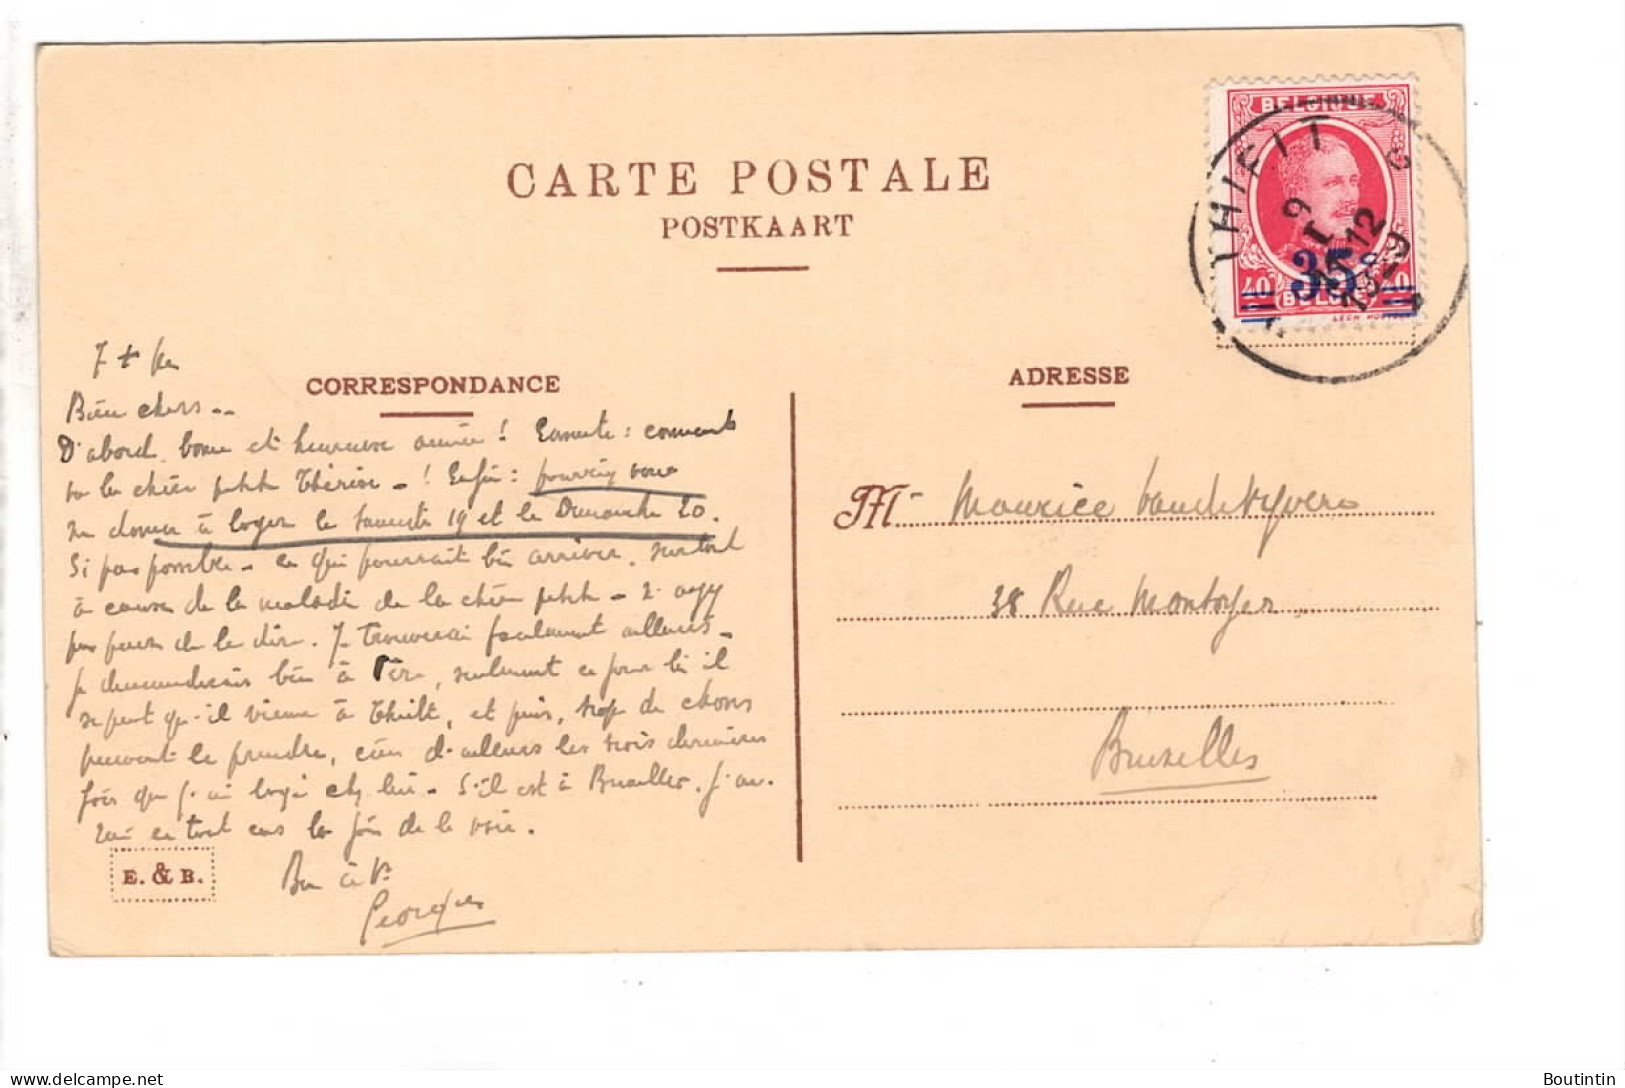 CARTE POSTALE
POSTKAART
BELGIQUE
35
40 40
BELGIË
THIELT
9 I 12
1929
CORRESPONDANCE
Bien chers --
D'abord bonne et heureuse année ! Ensuite : comment
va la chère petite Thérèse - ! Enfin : pourriez vous
me donner à loger le samedi 19 et le Dimanche 20.
Si pas possible - ce qui pourrait bien arriver, surtout
à cause de la maladie de la chère petite - n'ayez
pas peur de le dire. Je trouverai facilement ailleurs -
je demanderais bien à seulement ce jour là il
se peut qu'il vienne à Thielt, et puis, trop de choses
peuvent le prendre, d'ailleurs les trois dernières
fois que j'ai logé chez lui - S'il est à Bruxelles, j'au-
rai en tout cas la joie de le voir.
Bon à
Georges
E. & B.
ADRESSE
M - Maurice Vandevyvere
38 Rue Montoyer
Bruxelles
delcampe.net
Boutintin